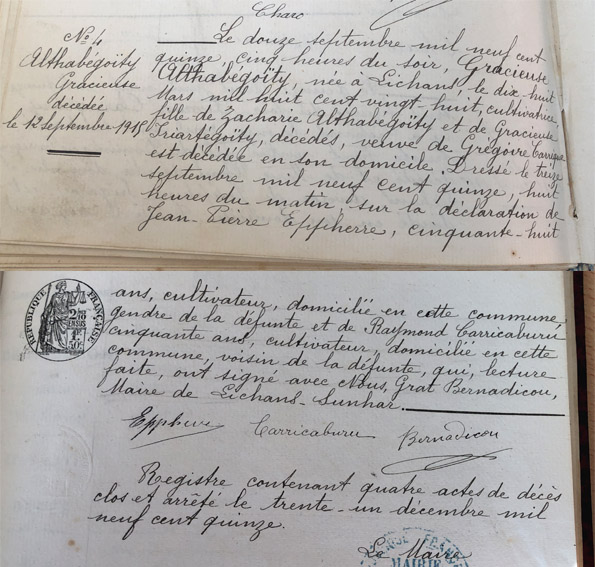 Charo
Nº 4
Althabégoïty
Gracieuse
décédée
le 12 septembre 1915
Le douze septembre mil neuf cent
quinze, cinq heures du soir, Gracieuse
Althabégoïty, née à Lichans, le dix huit
Mars mil huit cent vingt-huit, cultivatrice
fille de Zacharie Althabégoïty et de Gracieuse
Iriartégoïty, décédés, veuve de Grégoire
est décédée en son domicile. Dressé le treize
septembre mil neuf cent quinze, huit
heures du matin, sur la déclaration de
Jean-Pierre Eppherre, cinquante-huit
RÉPUBLIQUE FRANÇAISE
ans, cultivateur, domicilié en cette commune,
gendre de la défunte et de Raymond Carricaburu
cinquante ans, cultivateur, domicilié en cette
commune, voisin de la défunte, qui, lecture
faite, ont signé avec Nous, Grat Bernadicou,
Maire de Lichans-Sunhar.
Epphere Carricaburu Bernadicou
Registre contenant quatre actes de décès
clos et arrêté le trente-un décembre mil
neuf cent quinze.
Le Maire
MAIRIE